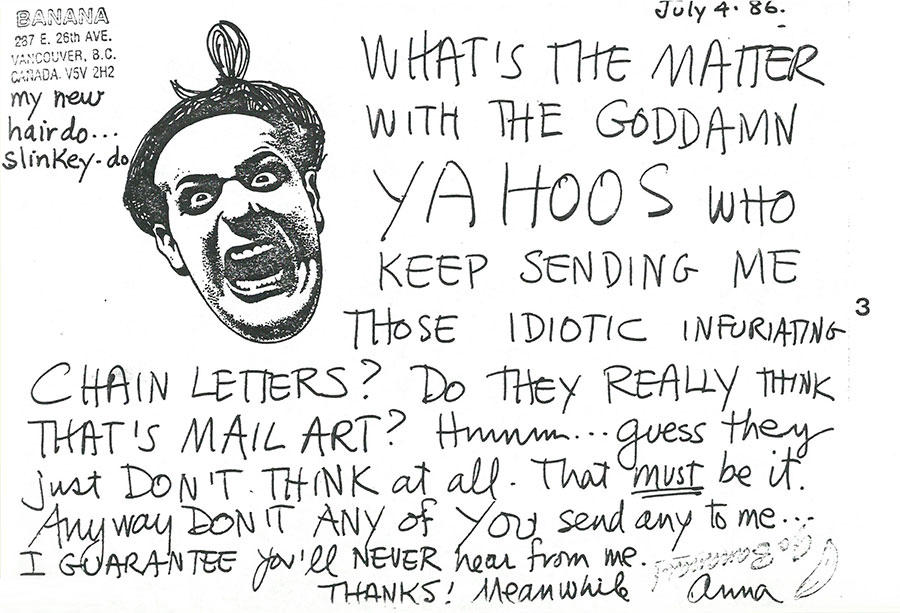 BANANA
287 E. 26th AVE.
VANCOUVER, B.C.
CANADA. V5V 2H2
my new
hairdo...
slinkey-do
July 4. 86.
WHAT'S THE MATTER
WITH THE GODDAMN
YAHOOS WHO
KEEP SENDING ME
THOSE IDIOTIC INFURIATING
3
CHAIN LETTERS? DO THEY REALLY THINK
THAT'S MAIL ART? Hmmm... guess they
just DON'T THINK at all. That must be it.
Anyway DON'T ANY of YOU send any to me...
I GUARANTEE you'll NEVER hear from me.
GO BANANAS!
THANKS! Meanwhile Anna